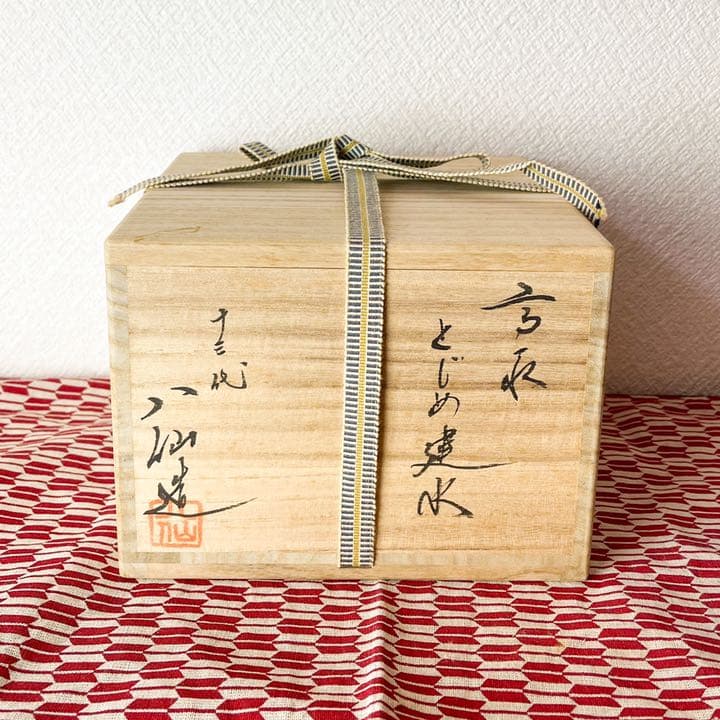 高取
とじめ建水
十三代
八仙造
八仙